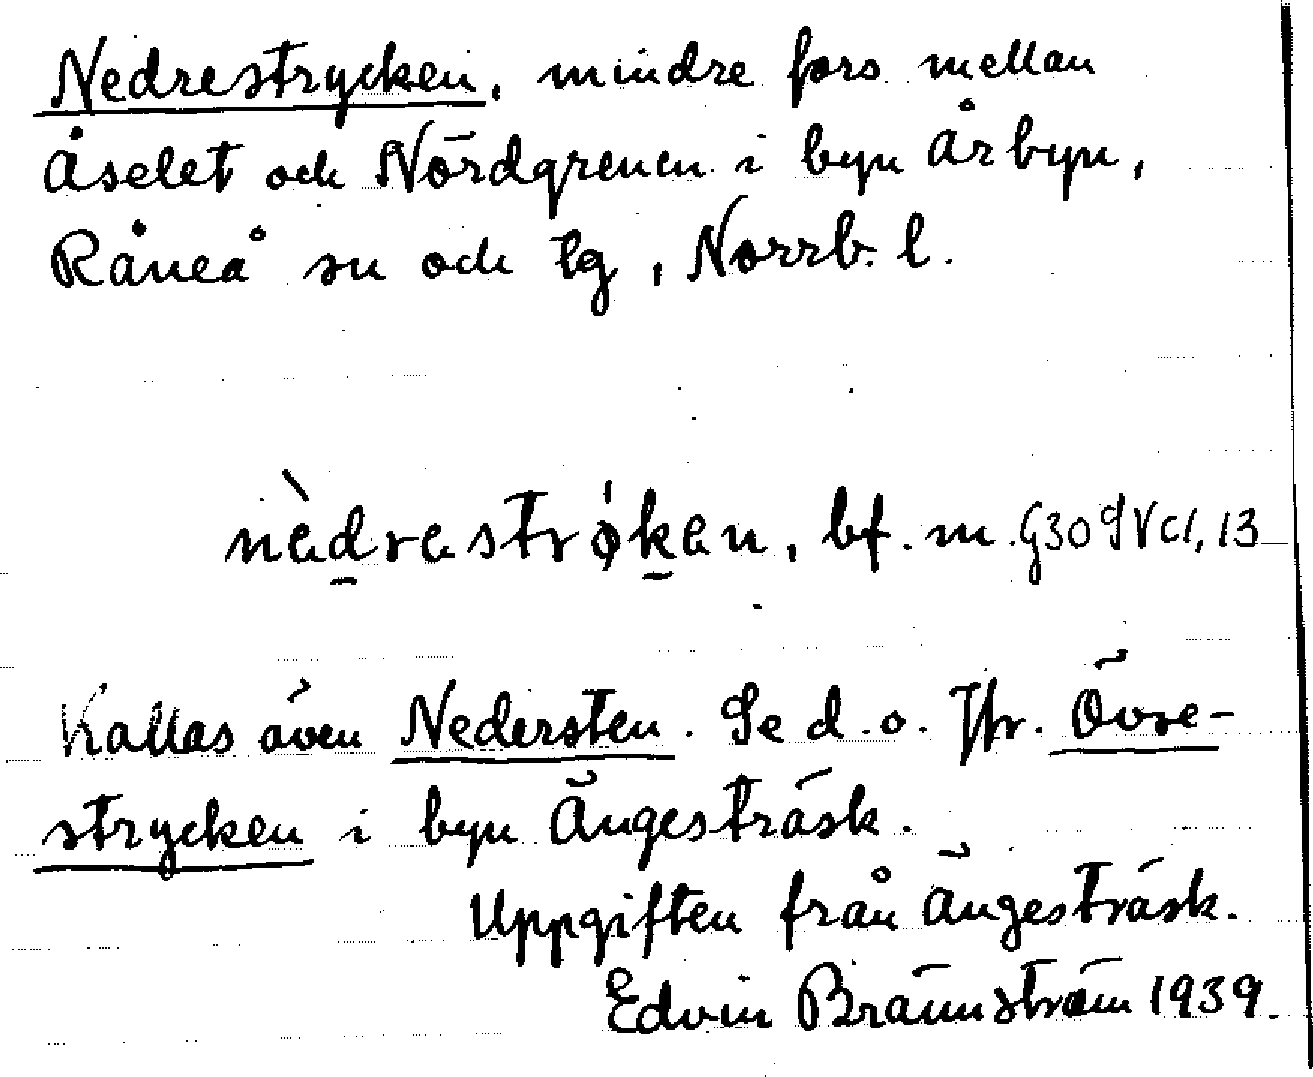 Nedrestrycken, mindre fors mellan
Åselet och Nördgrenen i byn Årbyn,
Råneå sn och tg, Norrb. l.
nèd̠restrǿk̠en, bf. m. G309Vc1, 13
Kallas även Nedersten. Se d. o. Jfr. Övre-
strycken i byn Ängesträsk.
Uppgiften från Ängesträsk.
Edvin Brännström 1939.